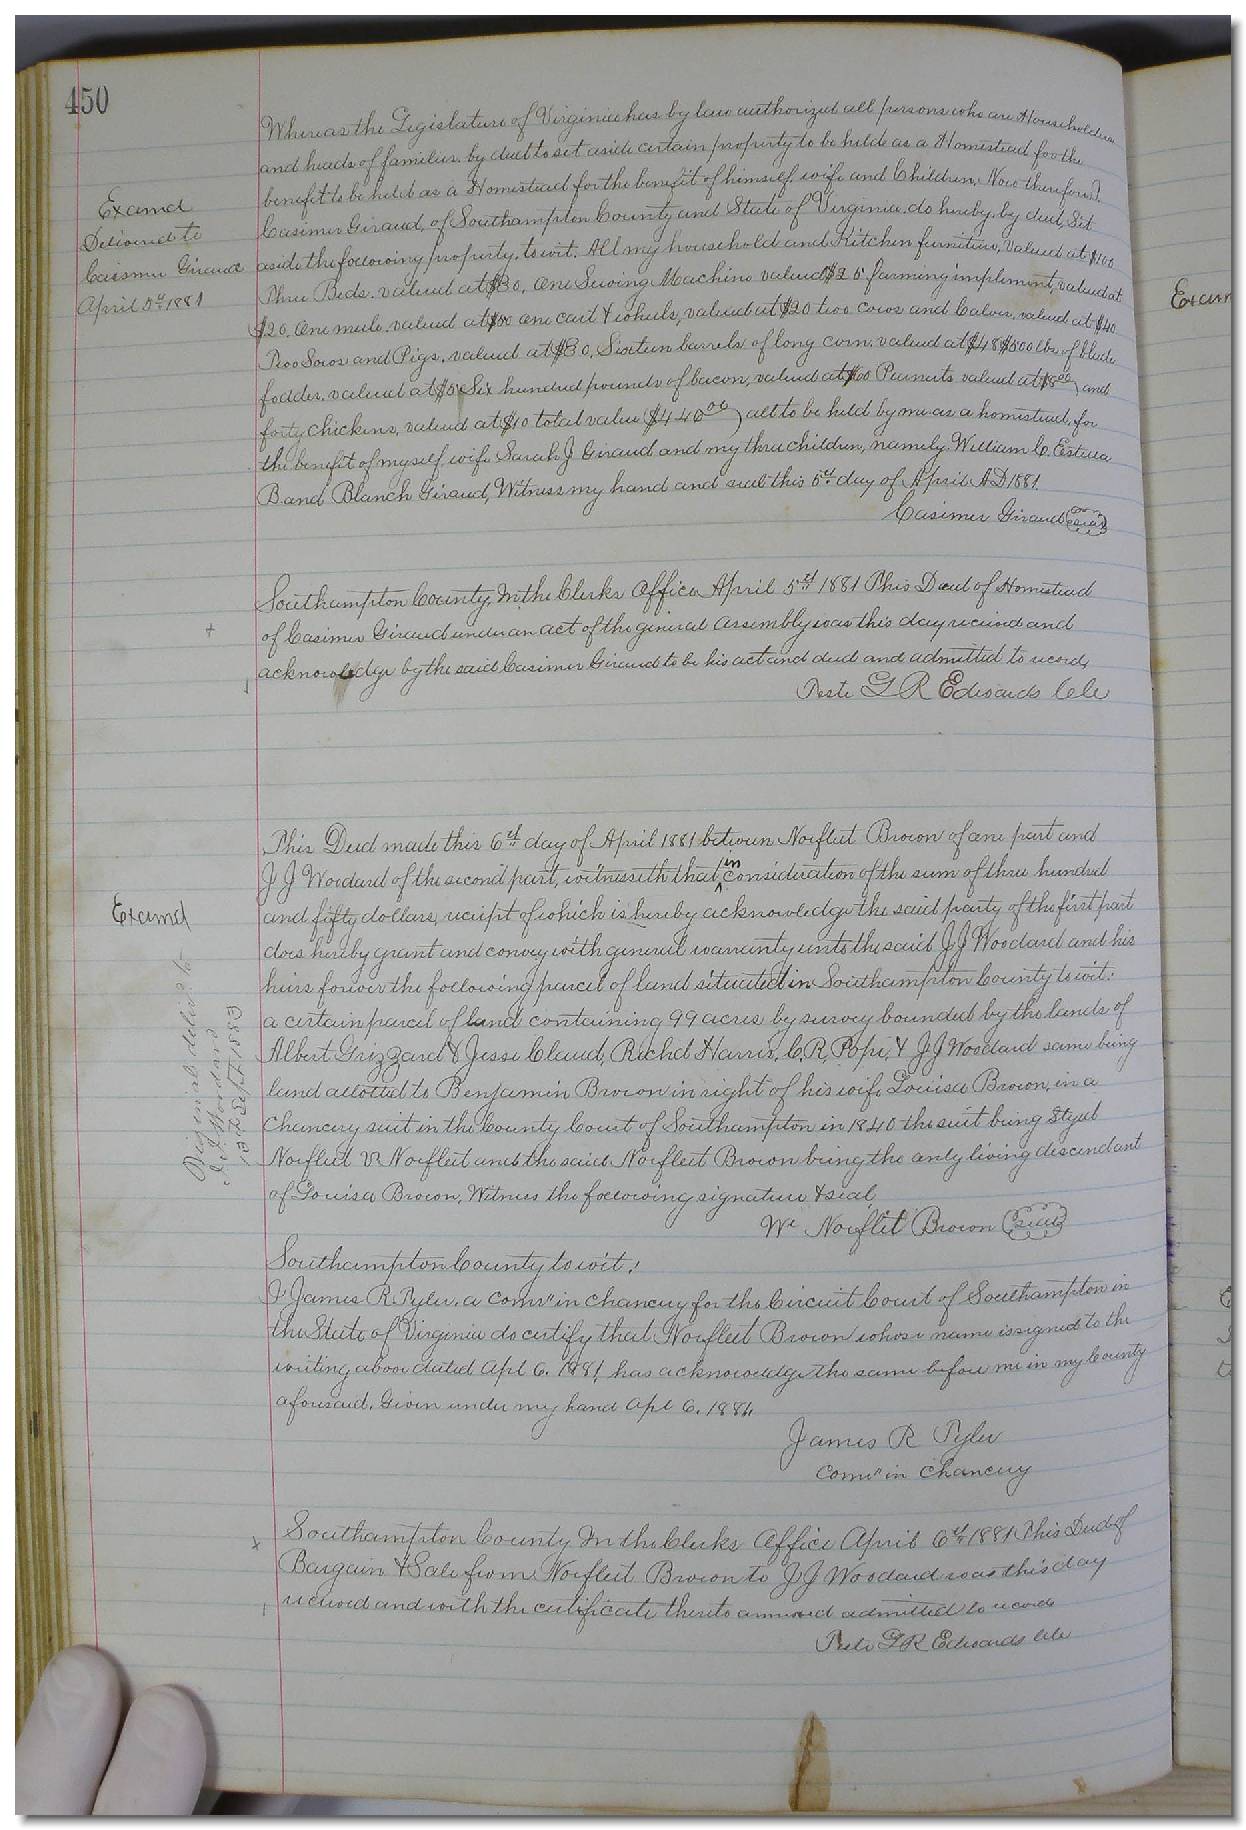 450
Whereas the Legislature of Virginia has by law authorized all persons who are Householders
and heads of families by deed to set aside certain property to be held as a Homestead for the
benefit to be held as a Homestead for the benefit of himself wife and Children. Now therefore I
Casimer Giraud, of Southampton County and State of Virginia do hereby, by deed, Set
aside the following property, to wit. All my household and Kitchen furniture, valued at $100
Three Beds. valued at $30. One Sewing Machine valued $25. farming implement, valued at
$20. One mule valued at one cart & wheels, valued at $20 two cows and Calves, valued at $40
Two Sows and Pigs. valued at $30, Sixteen barrels of long corn. valued at $48 500 lbs of blade
fodder. valued at $5 Six hundred pounds of bacon, valued at Peanuts valued at $8.00 and
forty chickens, valued at $10 total value $440.00 all to be held by me as a homestead, for
the benefit of myself wife Sarah J Giraud and my three children, namely William C. Estella
B and Blanch Giraud, Witness my hand and seal this 5th day of April A.D 1881.
Casimer Giraud seal
Examd
Delivered to
Casimer Giraud
April 5th 1881
Southampton County, In the Clerks Office April 5th 1881 This Deed of Homestead
of Casimer Giraud under an act of the general Assembly was this day received and
acknowledge by the said Casimer Giraud to be his act and deed and admitted to record,
Teste G R Edwards Clk
This Deed made this 6th day of April 1881 between Norfleet Brown of one part and
J J Woodard of the second part, witnesseth that in consideration of the sum of three hundred
and fifty dollars, receipt of which is hereby acknowledge the said party of the first part
does hereby grant and convey with general warranty unto the said J J Woodard and his
heirs forever the following parcel of land situated in Southampton County to wit:
a certain parcel of land containing 99 acres by survey bounded by the lands of
Albert Grizzard & Jesse Claud, Richd Harris, C. R, Pope, & J J Woodard same being
land allotted to Benjamin Brown in right of his wife Louisa Brown, in a
Chancery suit in the County Court of Southampton in 1840 the suit being Styed
Norfleet vs Norfleet and the said Norfleet Brown being the only living descendant
of Louisa Brown, Witness the following signature & seal
Wm Norflet Brown seal
Examd
Original deliv. to
J. J. Woodard
13th Sept 1883
Southampton County to wit:
I James R Tyler, a comr in Chancery for the Circuit Court of Southampton in
the State of Virginia do certify that Norfleet Brown whose name is signed to the
writing above dated Apl 6. 1881 has acknowledge the same before me in my County
aforesaid. Given under my hand Apl 6. 1881.
James R Tyler
Comr in Chancery
Southampton County In the Clerks Office April 6th 1881 This Deed of
Bargain & Sale from Norfleet Brown to J J Woodard was this day
received and with the certificate thereto annexed admitted to record
Teste G R Edwards Clk
Exam